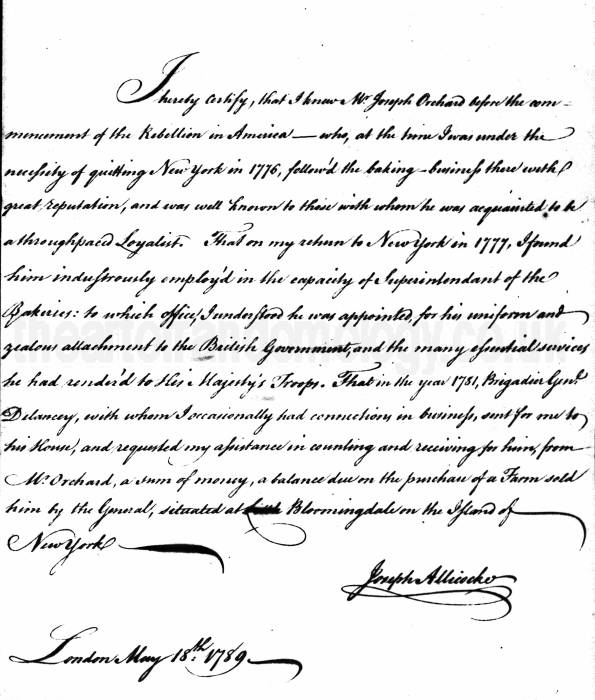 I hereby certify, that I knew Mr. Joseph Orchard before the com-
mencement of the Rebellion in America — who, at the time I was under the
necessity of quitting New York in 1776, follow'd the baking-business there with
great reputation, and was well known to those with whom he was acquainted to be
a throughpaced Loyalist. That on my return to New York in 1777, I found
him industrously employ'd in the capacity of Superintendant of the
Bakeries: to which office, I understood he was appointed, for his uniform and
zealous attachment to the British Government, and the many essential services
he had render'd to His Majesty's Troops. That in the year 1781, Brigadier Genl.
Delancery, with whom I occasionally had connections in business, sent for me to
his House, and requested my assistance in counting and receiving for him, from
Mr. Orchard, a sum of money, a balance due on the purchase of a Farm sold
him by the General, situated at Bloomingdale on the Island of
New York
Joseph Allicocke
London May 18th. 1789